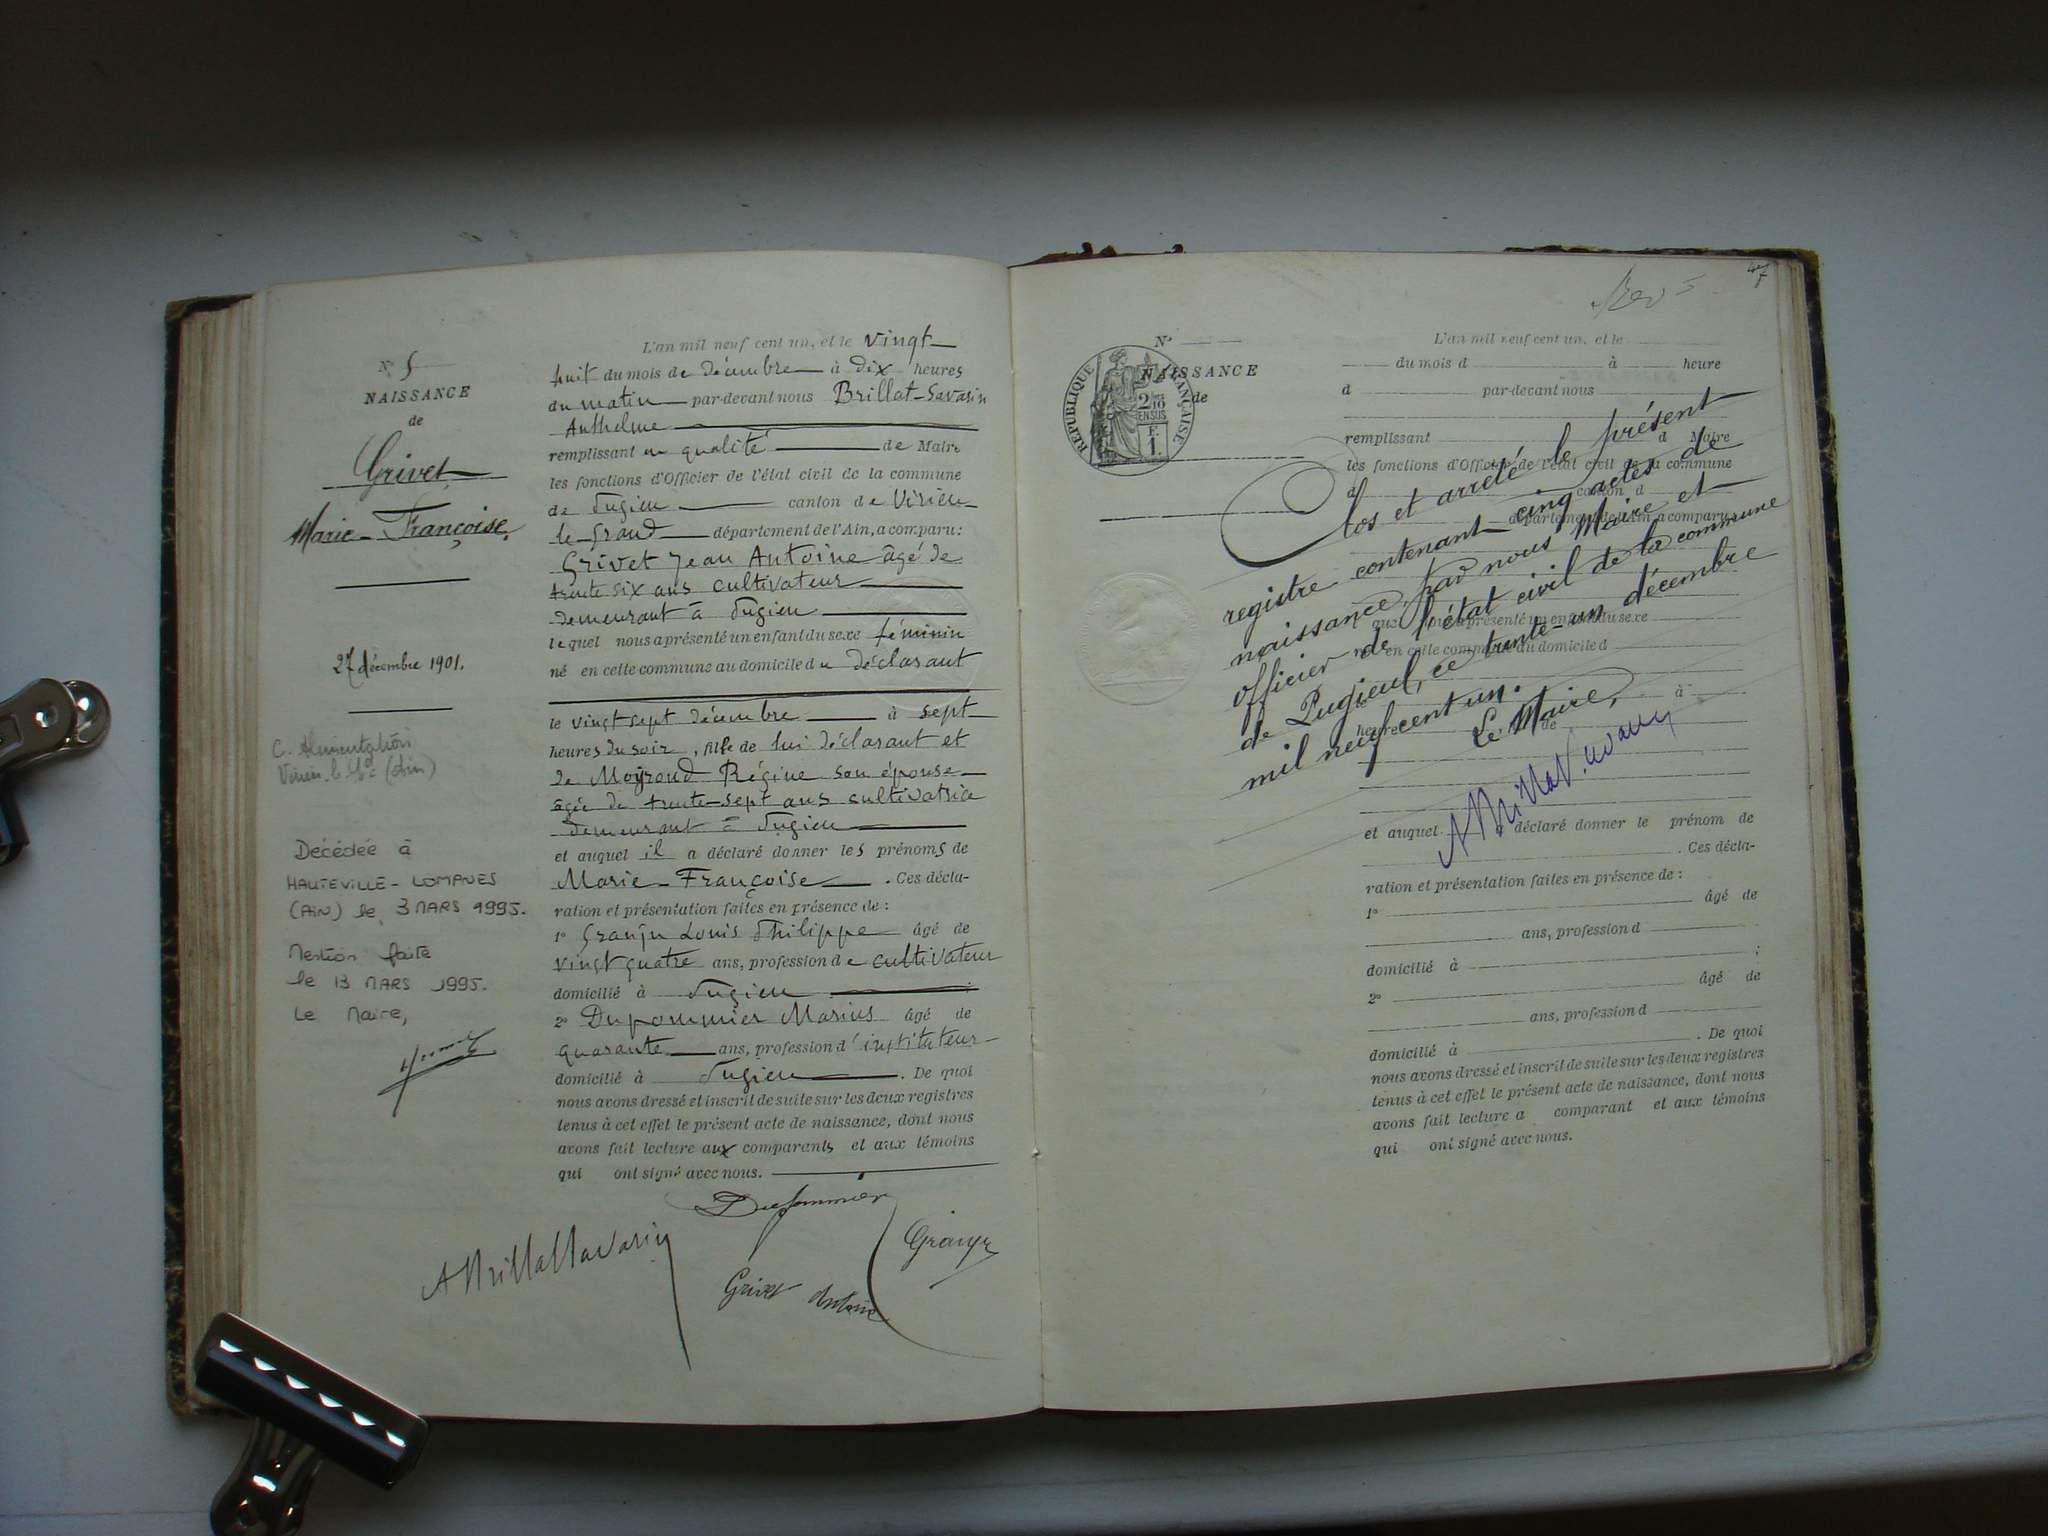 N° 5
NAISSANCE
de
Grivet
Marie-Françoise.
27 décembre 1901.
C. Alimentation
Décédée à
HAUTEVILLE - LOMPNES
(Ain) le 3 MARS 1995.
Mention faite
le 13 MARS 1995.
Le Maire,
L'an mil neuf cent un, et le vingt
huit du mois de décembre à dix heures
du matin par-devant nous Brillat-Savarin
Anthelme
remplissant en qualité de Maire
les fonctions d'Officier de l'état civil de la commune
de Pugieu canton de Virieu
le-Grand département de l'Ain, a comparu :
Grivet Jean Antoine âgé de
trente six ans cultivateur
demeurant à Pugieu
lequel nous a présenté un enfant du sexe féminin
né en cette commune au domicile du déclarant
le vingt sept décembre à sept
heures du soir, fille de lui déclarant et
de Moyroud Régine son épouse
âgée de trente-sept ans cultivatrice
demeurant à Pugieu
et auquel il a déclaré donner les prénoms de
Marie-Françoise . Ces décla-
ration et présentation faites en présence de :
1° Granju Louis Philippe âgé de
vingt quatre ans, profession de cultivateur
domicilié à Pugieu ;
2° Dupommier Marius âgé de
quarante ans, profession d'instituteur
domicilié à Pugieu . De quoi
nous avons dressé et inscrit de suite sur les deux registres
tenus à cet effet le présent acte de naissance, dont nous
avons fait lecture aux comparants et aux témoins
qui ont signé avec nous.
Dupommier
ABrillatSavarin
Granju
Grivet Antoine
47
N°
NAISSANCE
de
RÉPUBLIQUE FRANÇAISE
2/10
EN SUS
F.
1.
L'an mil neuf cent un, et le
du mois d à heure
d par-devant nous
remplissant d Maire
les fonctions d'Officier de l'état civil de la commune
d canton d
département de l'Ain, a comparu :
qu nous a présenté un enfant du sexe
né en cette commune au domicile d
à
heure de
Clos et arrêté le présent
registre contenant cinq actes de
naissance, par nous Maire et
officier de l'état civil de la commune
de Pugieu, ce trente-un décembre
mil neuf cent un.
Le Maire,
ABrillatSavarin
et auquel a déclaré donner le prénom de
. Ces décla-
ration et présentation faites en présence de :
1° âgé de
ans, profession d
domicilié à ;
2° âgé de
ans, profession d
domicilié à . De quoi
nous avons dressé et inscrit de suite sur les deux registres
tenus à cet effet le présent acte de naissance, dont nous
avons fait lecture a comparant et aux témoins
qui ont signé avec nous.